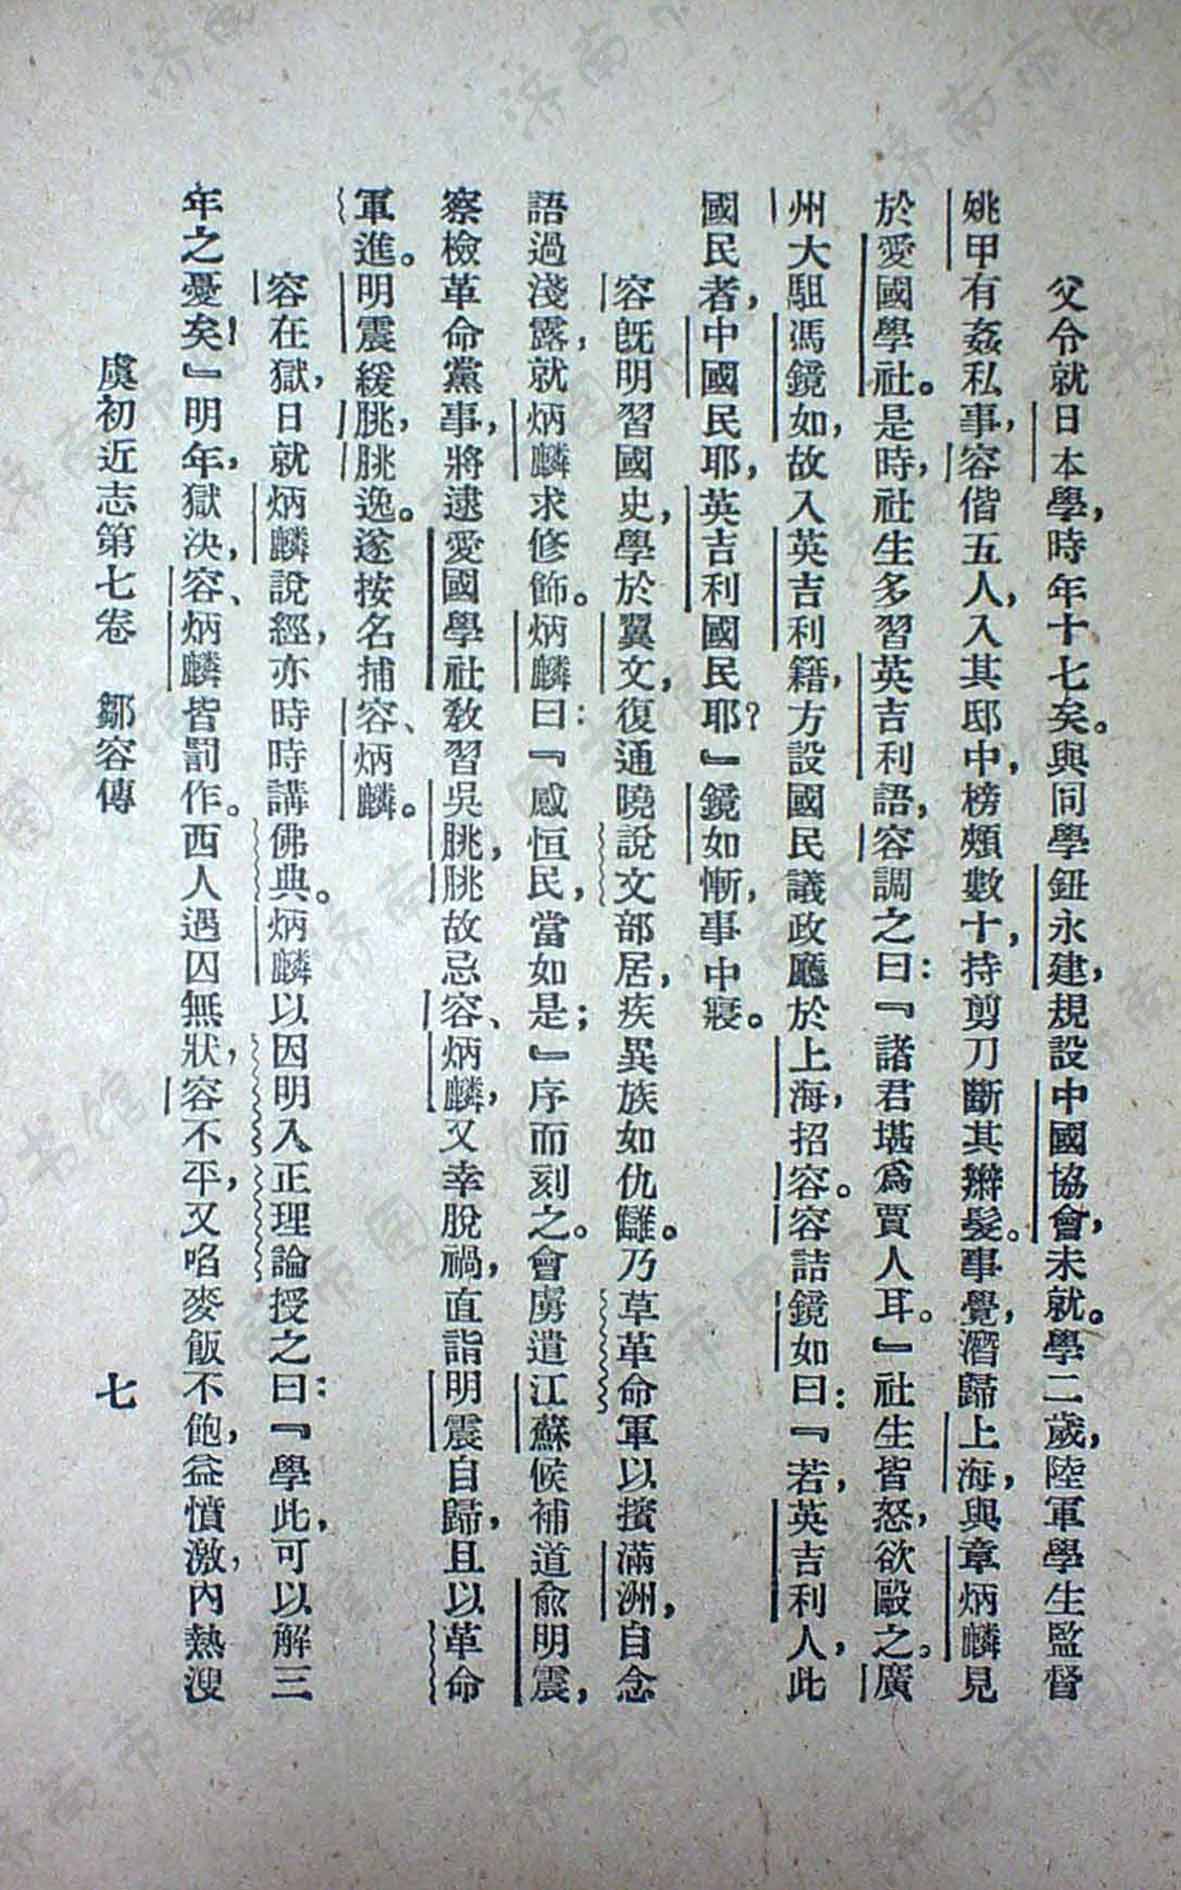 父令就日本學，時年十七矣。與同學鈕永建，規設中國協會，未就。學二歲，陸軍學生監督
姚甲有姦私事，容偕五人，入其邸中，榜頰數十，持剪刀斷其辮髮。事覺，潛歸上海，與章炳麟見
於愛國學社。是時，社生多習英吉利語，容調之曰：『諸君堪爲賈人耳。』社生皆怒，欲毆之。廣
州大駔馮鏡如，故入英吉利籍，方設國民議政廳於上海，招容。容詰鏡如曰：『若，英吉利人，此
國民者，中國民耶，英吉利國民耶？』鏡如慚，事中寢。
容既明習國史，學於翼文，復通曉說文部居，疾異族如仇讎。乃草革命軍以擯滿洲，自念
語過淺露，就炳麟求修飾。炳麟曰：『感恒民，當如是；』序而刻之。會虜遣江蘇候補道俞明震，
察檢革命黨事，將逮愛國學社敎習吳朓，朓故忌容、炳麟，又幸脫禍，直詣明震自歸，且以革命
軍進。明震緩朓，朓逸。遂按名捕容、炳麟。
容在獄，日就炳麟說經，亦時時講佛典。炳麟以因明入正理論授之曰：『學此，可以解三
年之憂矣！』明年，獄決，容、炳麟皆罰作。西人遇囚無狀，容不平，又啗麥飯不飽，益憤激，內熱溲
虞初近志第七卷　鄒容傳　七
济南市图书馆